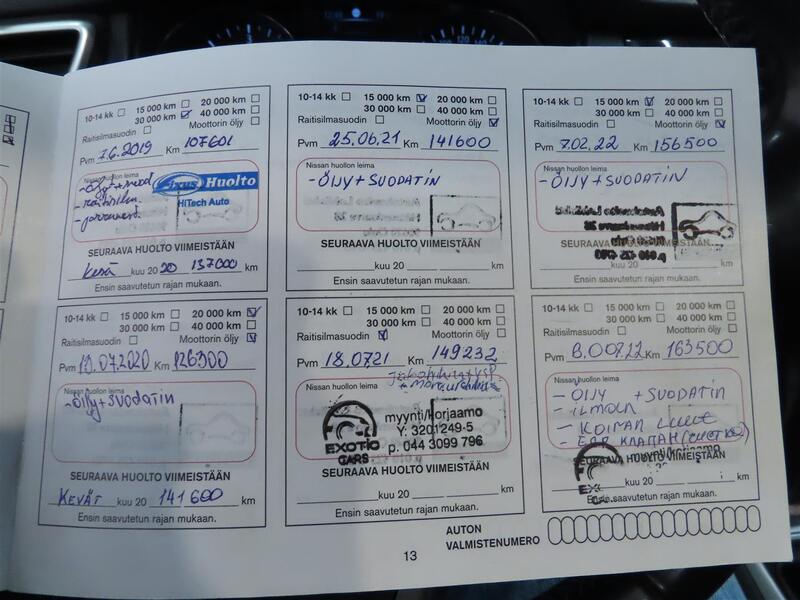 10-14 kk 15 000 km 20 000 km
30 000 km 40 000 km
Raitisilmasuodin Moottorin öljy
Pvm 7.6.2019 Km 107601
Nissan huollon leima
Fixus Huolto
HiTech Auto
SEURAAVA HUOLTO VIIMEISTÄÄN
Kesä kuu 20 20 137000 km
Ensin saavutetun rajan mukaan.
10-14 kk 15 000 km 20 000 km
30 000 km 40 000 km
Raitisilmasuodin Moottorin öljy
Pvm 25.06.21 Km 141600
Nissan huollon leima
- ÖLJY + SUODATIN
SEURAAVA HUOLTO VIIMEISTÄÄN
kuu 20 km
Ensin saavutetun rajan mukaan.
10-14 kk 15 000 km 20 000 km
30 000 km 40 000 km
Raitisilmasuodin Moottorin öljy
Pvm 7.02.22 Km 156500
Nissan huollon leima
- ÖLJY + SUODATIN
SEURAAVA HUOLTO VIIMEISTÄÄN
kuu 20 km
Ensin saavutetun rajan mukaan.
10-14 kk 15 000 km 20 000 km
30 000 km 40 000 km
Raitisilmasuodin Moottorin öljy
Pvm .07.2020 Km 126300
Nissan huollon leima
- Öljy + SUODATIN
SEURAAVA HUOLTO VIIMEISTÄÄN
KEVÄT kuu 20 141600 km
Ensin saavutetun rajan mukaan.
10-14 kk 15 000 km 20 000 km
30 000 km 40 000 km
Raitisilmasuodin Moottorin öljy
Pvm 18.0721 Km 149232
Nissan huollon leima
myynti/korjaamo
Y: 3201249-5
p. 044 3099 796
EXOTIC
CARS
SEURAAVA HUOLTO VIIMEISTÄÄN
kuu 20 km
Ensin saavutetun rajan mukaan.
10-14 kk 15 000 km 20 000 km
30 000 km 40 000 km
Raitisilmasuodin Moottorin öljy
Pvm Km 163500
Nissan huollon leima
- ÖLJY + SUODATIN
- ILMAN
-
- EGR
myynti/korjaamo
SEURAAVA HUOLTO VIIMEISTÄÄN
kuu 20 km
Ensin saavutetun rajan mukaan.
AUTON
VALMISTENUMERO
13